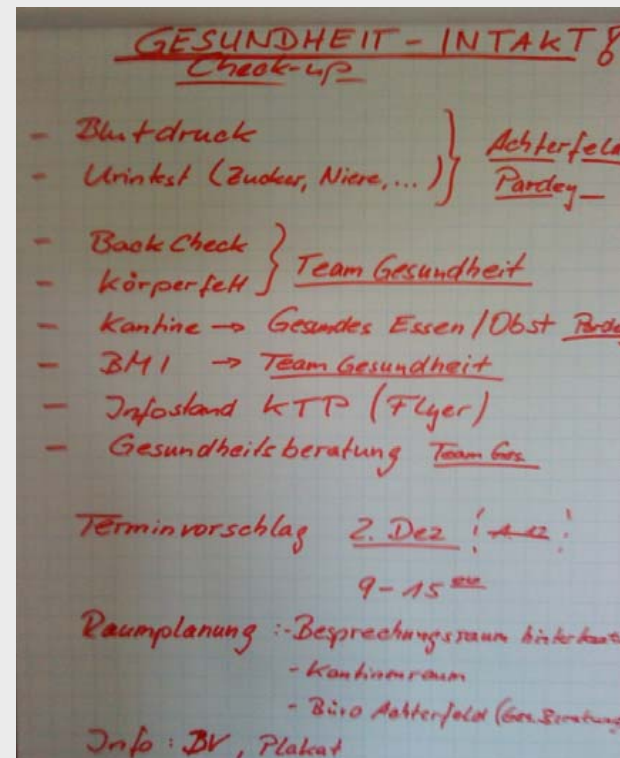 GESUNDHEIT - INTAKT!
Check-up
- Blutdruck
- Urintest (Zucker, Niere, ...) } Achterfeld
Pardey
- Back Check
- Körperfett } Team Gesundheit
- Kantine → Gesundes Essen / Obst Pardey
- BMI → Team Gesundheit
- Infostand KTP (Flyer)
- Gesundheitsberatung Team Ges
Terminvorschlag 2. Dez !
9 - 15
Raumplanung :- Besprechungsraum hinter
- Kantinenraum
- Büro Achterfeld (Ges. Beratung
Info : BV, Plakat